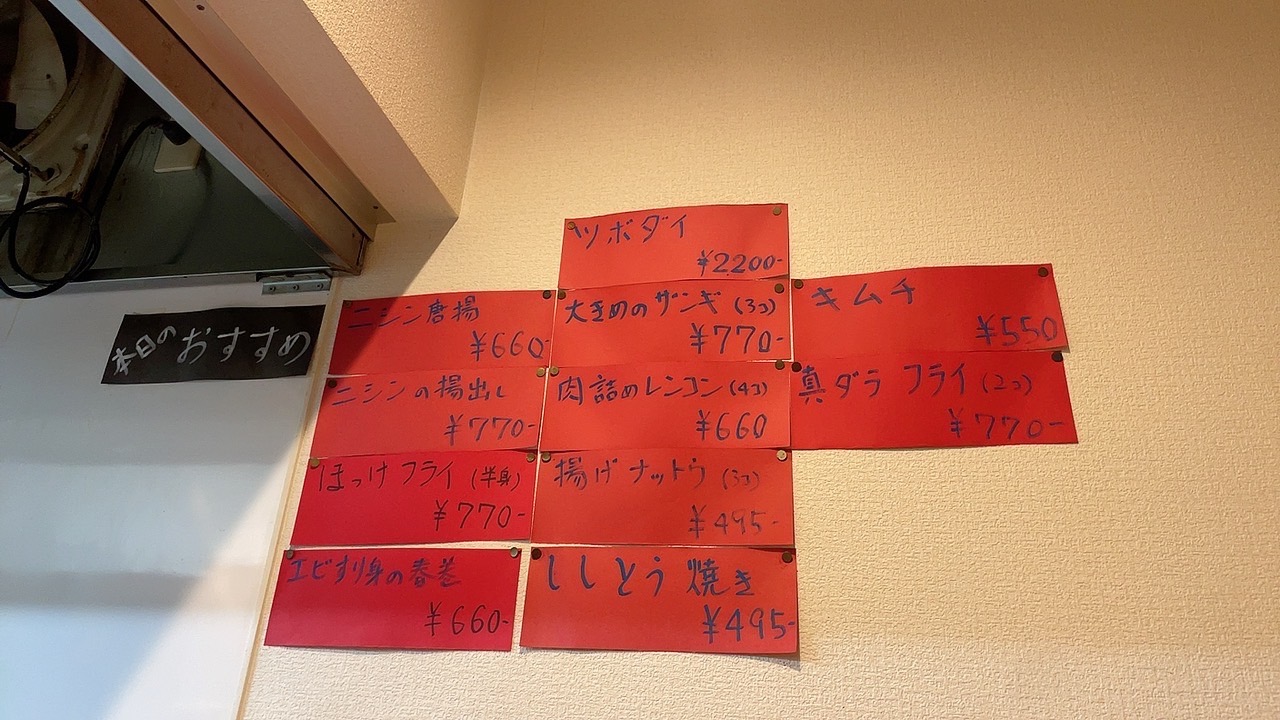 本日の おすすめ
ニシン唐揚
¥660-
ニシンの揚出し
¥770-
ほっけ フライ (半身)
¥770-
エビすり身の春巻
¥660-
ツボダイ
¥2200-
大きめのザンギ (3コ)
¥770-
肉詰めレンコン (4コ)
¥660
揚げ ナットウ (3コ)
¥495-
ししとう 焼き
¥495-
キムチ
¥550
真ダラ フライ (2コ)
¥770-